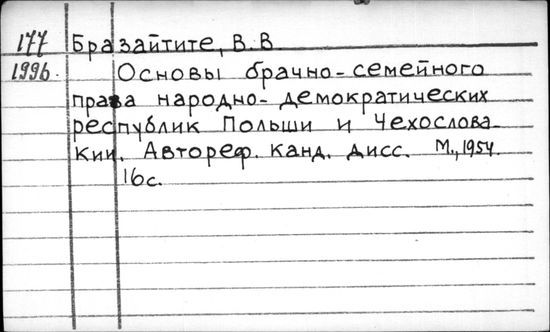 177 Бразайтите, В. В
1996. Основы брачно-семейного
права народно-демократических
республик Польши и Чехослова-
кии. Автореф. канд. дисс. М., 1954.
16с.